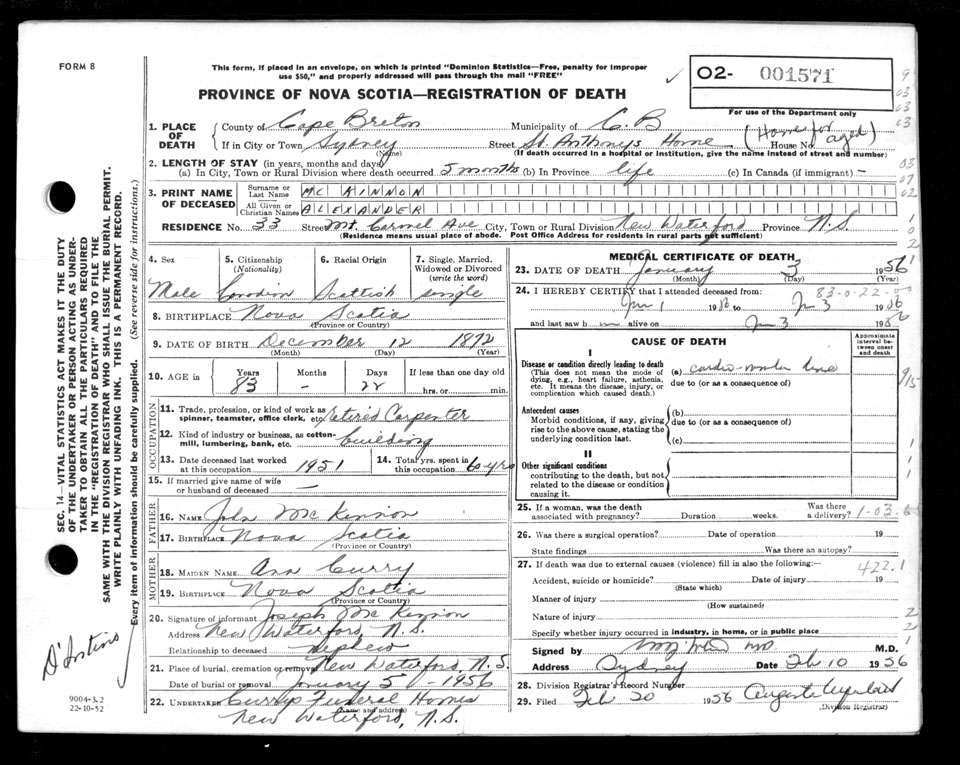 FORM 8
This form, if placed in an envelope, on which is printed "Dominion Statistics—Free, penalty for improper
use $50," and properly addressed will pass through the mail "FREE"
PROVINCE OF NOVA SCOTIA—REGISTRATION OF DEATH
O2- 001571
For use of the Department only
1. PLACE OF DEATH
County of Cape Breton Municipality of C B
If in City or Town Sydney (Name) Street St. Anthonys Home House No. (Home for aged)
(If death occurred in a hospital or institution, give the name instead of street and number)
2. LENGTH OF STAY (in years, months and days)
(a) In City, Town or Rural Division where death occurred 5 months (b) In Province life (c) In Canada (if immigrant) -
3. PRINT NAME OF DECEASED
Surname or Last Name MC KINNON
All Given or Christian Names ALEXANDER
RESIDENCE No. 33 Street Mt. Carmel Ave City, Town or Rural Division New Waterford Province N.S.
(Residence means usual place of abode. Post Office Address for residents in rural parts not sufficient)
4. Sex
Male
5. Citizenship (Nationality)
6. Racial Origin
Scottish
7. Single, Married, Widowed or Divorced (write the word)
single
8. BIRTHPLACE Nova Scotia
(Province or Country)
9. DATE OF BIRTH December 12 1872
(Month) (Day) (Year)
10. AGE in Years 83 Months - Days 22 If less than one day old hrs. or min.
OCCUPATION
11. Trade, profession, or kind of work as spinner, teamster, office clerk, etc. retired Carpenter
12. Kind of industry or business, as cotton-mill, lumbering, bank, etc. building
13. Date deceased last worked at this occupation 1951
14. Total yrs. spent in this occupation 60 yrs
15. If married give name of wife or husband of deceased —
FATHER
16. NAME John McKinnon
17. BIRTHPLACE Nova Scotia
(Province or Country)
MOTHER
18. MAIDEN NAME Ann Curry
19. BIRTHPLACE Nova Scotia
(Province or Country)
20. Signature of informant Joseph McKinnon
Address New Waterford, N.S.
Relationship to deceased nephew
21. Place of burial, cremation or removal New Waterford, N.S.
Date of burial or removal January 5 - 1956
22. UNDERTAKER Currys Funeral Homes
(Name and address)
New Waterford, N.S.
MEDICAL CERTIFICATE OF DEATH
23. DATE OF DEATH January 3 1956
(Month) (Day)
83-0-22
24. I HEREBY CERTIFY that I attended deceased from:
Jan 1 1956 to Jan 3 1956
and last saw h m alive on Jan 3 1956
CAUSE OF DEATH
Approximate interval between onset and death
I
Disease or condition directly leading to death
(This does not mean the mode of dying, e.g., heart failure, asthenia, etc. It means the disease, injury, or complication which caused death.)
(a)
due to (or as a consequence of)
Antecedent causes
Morbid conditions, if any, giving rise to the above cause, stating the underlying condition last.
(b)
due to (or as a consequence of)
(c)
II
Other significant conditions
contributing to the death, but not related to the disease or condition causing it.
25. If a woman, was the death associated with pregnancy? Duration weeks. Was there a delivery?
26. Was there a surgical operation? Date of operation 19
State findings Was there an autopsy?
27. If death was due to external causes (violence) fill in also the following:—
422.1
Accident, suicide or homicide? Date of injury 19
(State which)
Manner of injury
(How sustained)
Nature of injury
Specify whether injury occurred in industry, in home, or in public place
Signed by M.D.
Address Sydney Date Feb 10 1956
28. Division Registrar's Record Number
29. Filed Feb 20 1956
(Division Registrar)
SEC. 14—VITAL STATISTICS ACT MAKES IT THE DUTY
OF THE UNDERTAKER OR PERSON ACTING AS UNDERTAKER
TO OBTAIN ALL THE PARTICULARS REQUIRED
IN THE "REGISTRATION OF DEATH" AND TO FILE THE
SAME WITH THE DIVISION REGISTRAR WHO SHALL ISSUE THE BURIAL PERMIT.
WRITE PLAINLY WITH UNFADING INK. THIS IS A PERMANENT RECORD.
Every item of information should be carefully supplied. (See reverse side for instructions.)
9004-3.2
22-10-52